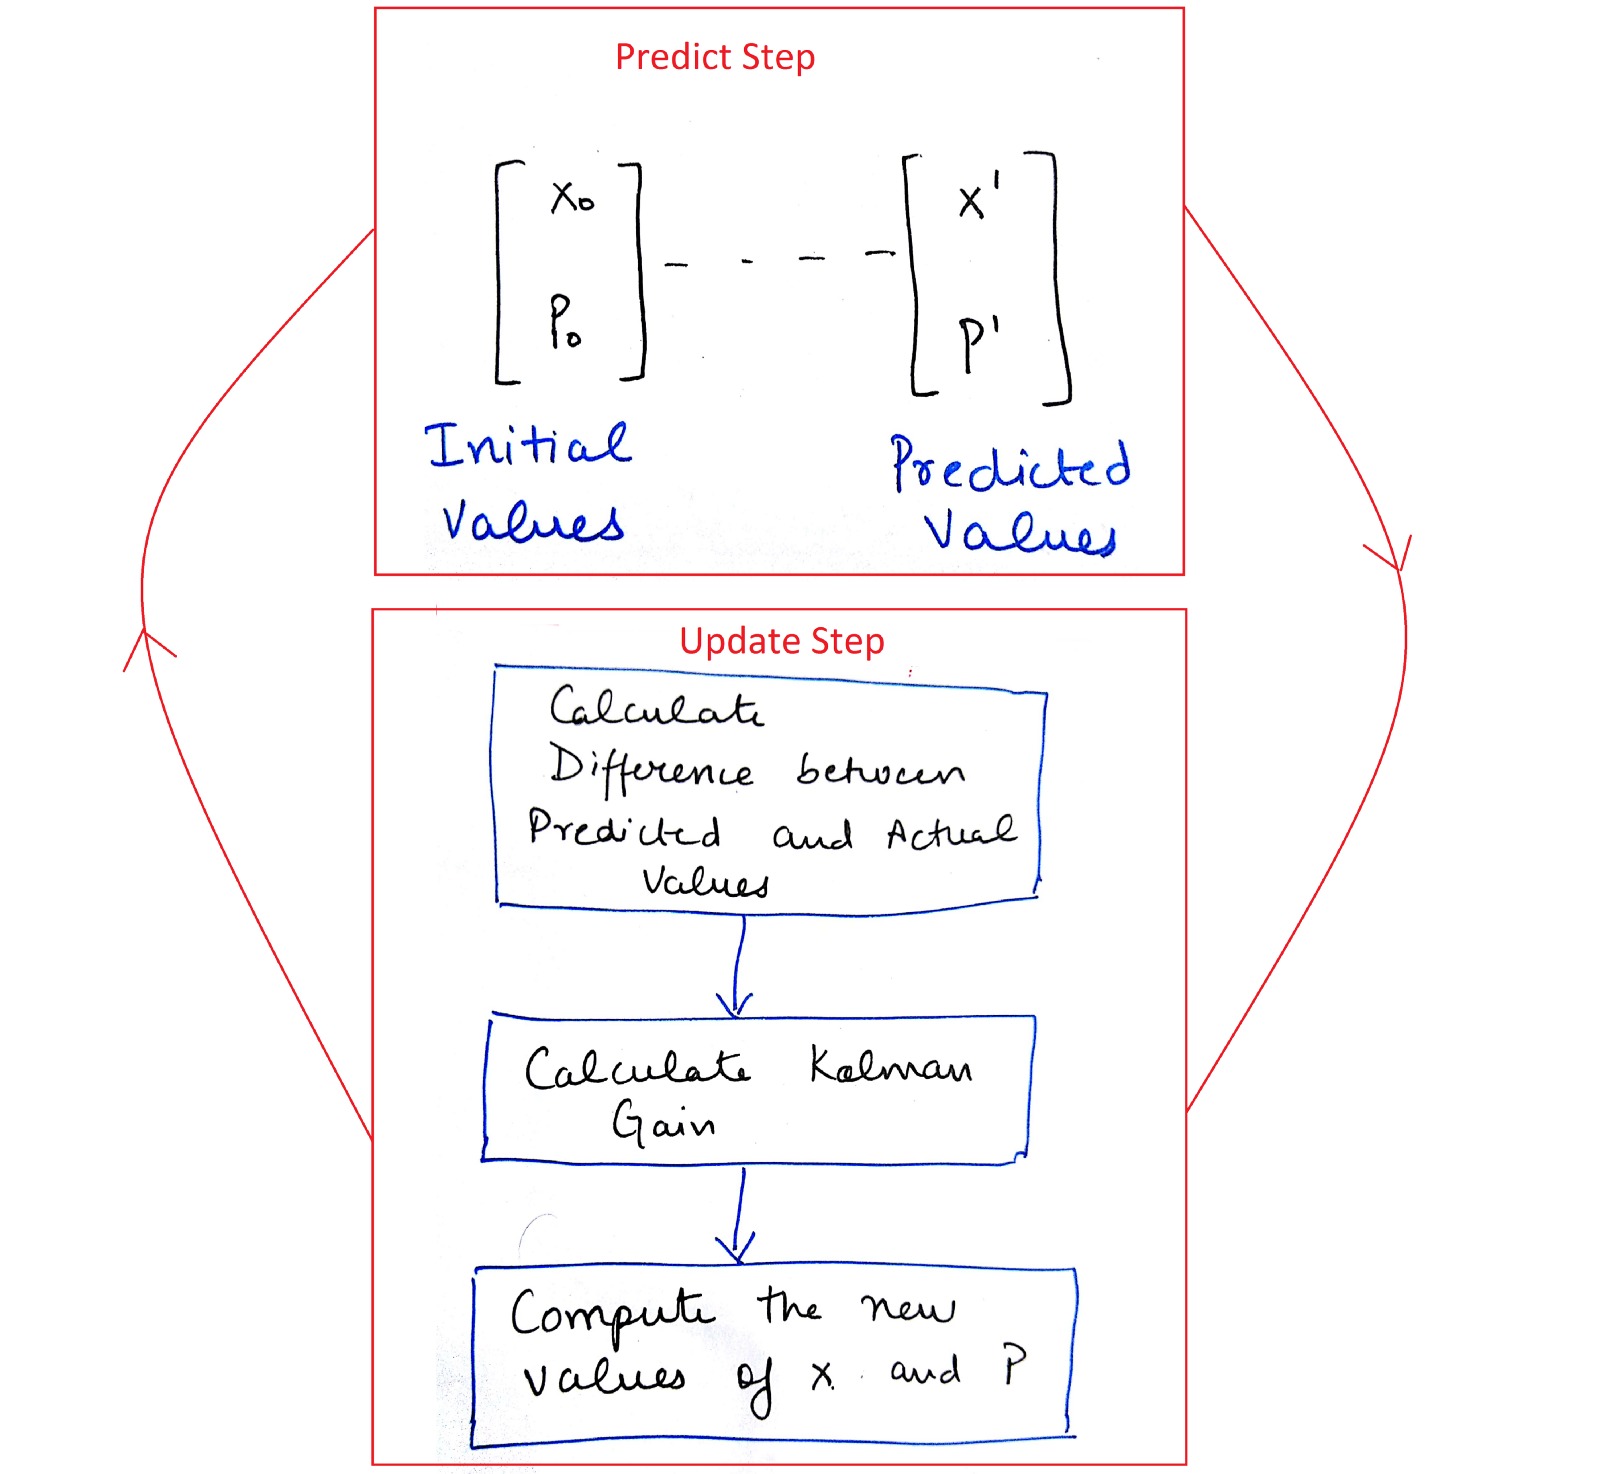 Predict Step
x₀
P₀
- - - -
x'
P'
Initial
Values
Predicted
Values
Update Step
Calculate
Difference between
Predicted and Actual
Values
Calculate Kalman
Gain
Compute the new
values of x and P